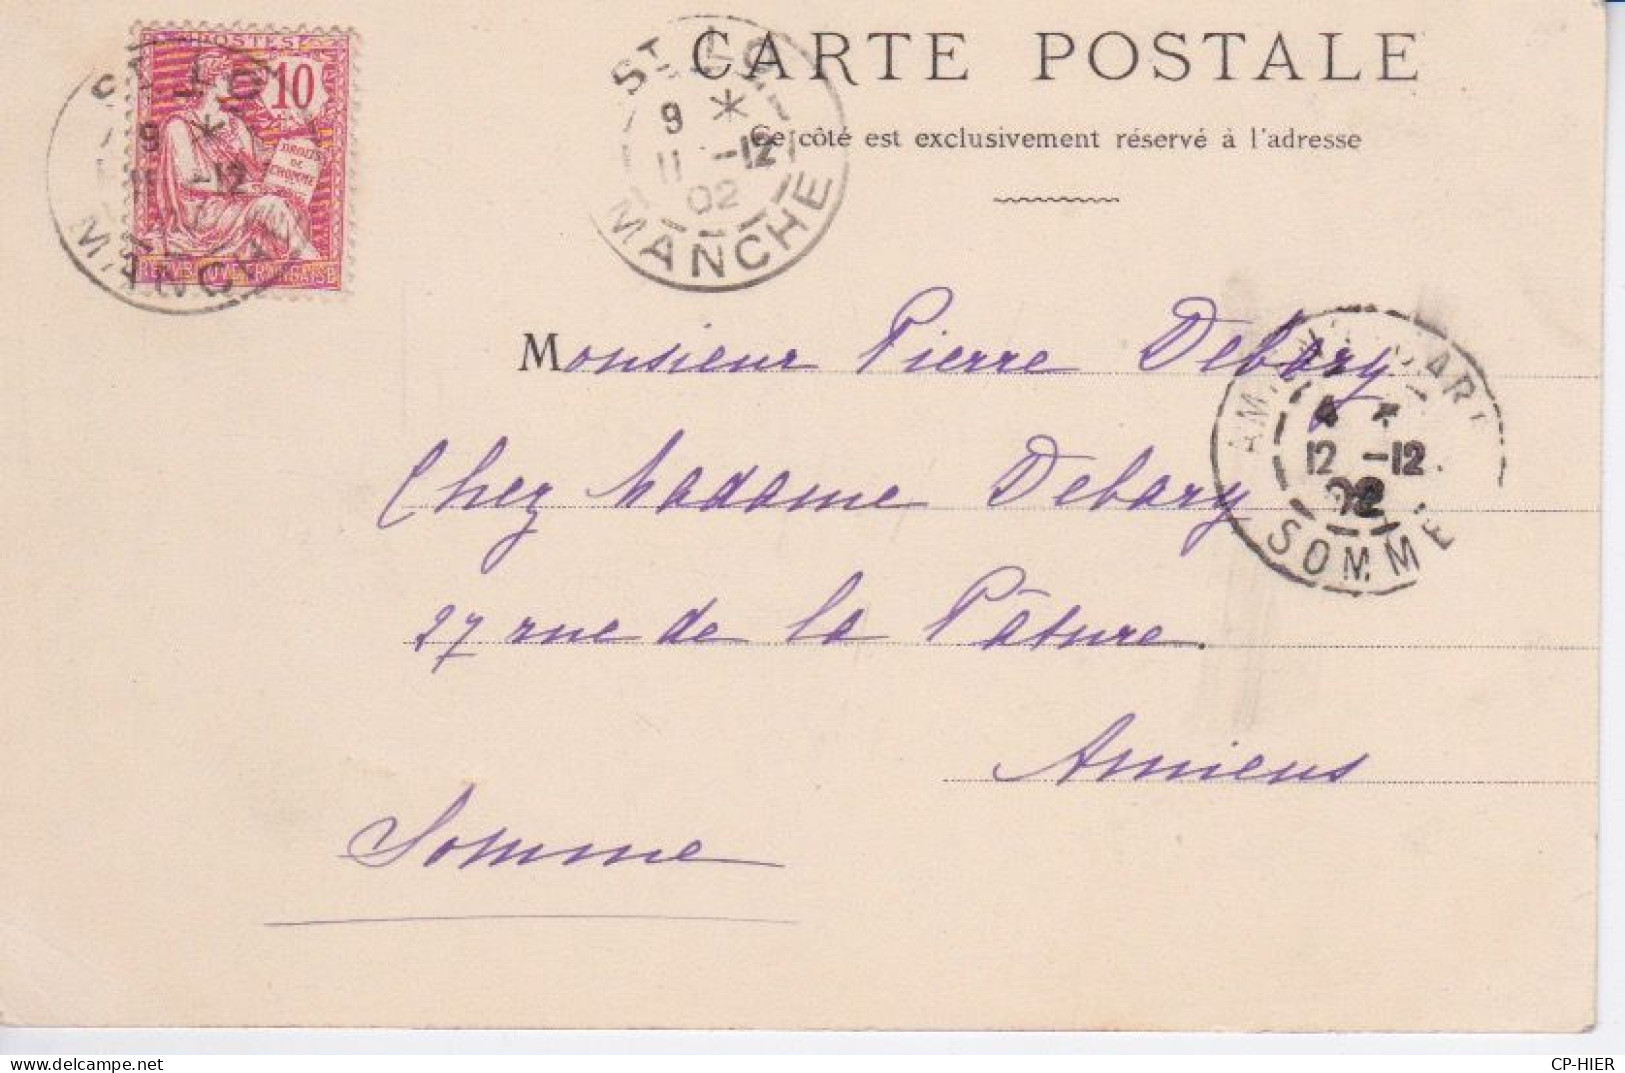 POSTES
10
DROITS
DE
L'HOMME
REPUBLIQUE FRANÇAISE
ST LO
9 *
11 -12
02
MANCHE
CARTE POSTALE
Ce côté est exclusivement réservé à l'adresse
Monsieur Pierre Debary
Chez Madame Debary
27 rue de la Pâture.
Amiens
Somme
4 *
12 -12
02
SOMME
delcampe.net
CP-HIER